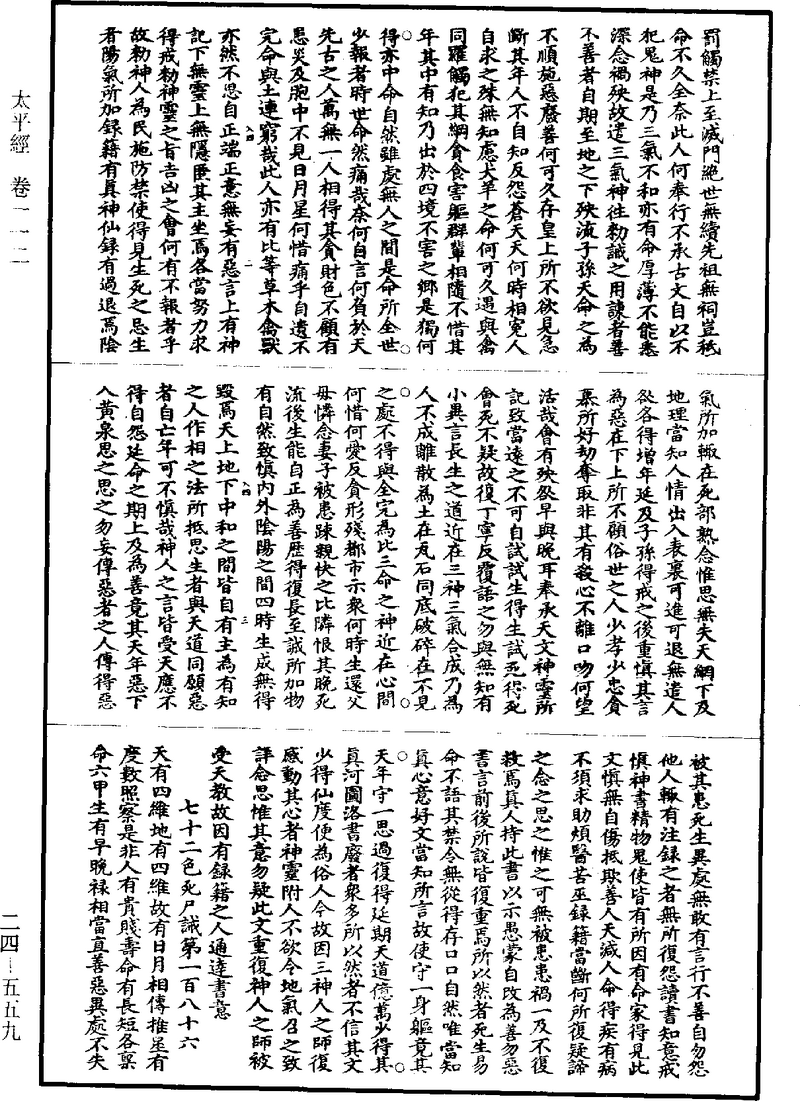 太平經　卷一一二
罰觸禁上至滅門絕世無續先祖無祠豈秪
命不久全奈此人何奉行不承古文自以不
犯鬼神是乃三氣不和亦有命厚薄不能悉
深念禍殃故遣三氣神往勑誡之用諫者善
不善者自期至地之下殃流子孫天命之為
不順施惡廢善何可久存皇上所不欲見急
斷其年人不自知反怨蒼天天何時相冤人
自求之殊無知慮犬羊之命何可久遇與禽
同羅觸犯其綱貪食害軀群輩相隨不惜其
年其中有知乃出於四境不害之鄉是獨何
得亦中命自然雖處無人之間是命所全世
少報者時世命然痛哉奈何自言何負於天
先古之人萬無一人相得其貪財色不顧有
患災及胞中不見日月星何惜痛乎自遺不
完命與土連窮哉此人亦有比等草木禽獸
亦然不思自正端正意無妄有惡言上有神
記下無靈上無隱匿其主坐焉各當努力求
得戒勑神靈之旨吉凶之會何有不報者乎
故勑神人為民施防禁使得見生死之忌生
者陽氣所加錄籍有真神仙錄有過退焉陰
氣所加輙在死部熟念惟思無失天網下及
地理當知人情出入表裏可進可退無遣人
欲各得增年延及子孫得戒之後重慎其言
為惡在下上所不顧俗世之人少孝少忠貪
慕所好劫奪取非其有殺心不離口吻何望
活哉會有殃欲早與晚耳奉承天文神靈所
記致當遠之不可自試試生得生試死得死
會死不疑故復丁寧反覆語之勿與無知有
小異言長生之道近在三神三氣合成乃為
人不成離散為土在瓦石同底破碎在不見
之處不得與全完為比三命之神近在心間
何惜何愛反貪形殘都市示眾何時生還父
母憐念妻子被患踈親快之比隣恨其晚死
流後生能自正為善歷得復長至誠所加物
有自然致慎內外陰陽之間四時生成無得
毀焉天上地下中和之間皆自有主為有知
之人作相之法所抵思生者與天道同願惡
者自亡年可不慎哉神人之言皆受天應不
得自怨延命之期上及為善竟其天年惡下
入黃泉思之思之勿妄傳惡者之人傳得惡
被其患死生異處無敢有言行不善自勿怨
他人輙有注錄之者無所復怨讀書知意戒
慎神書精物鬼使皆有所因有命家得見此
文慎無自傷抵欺善人天減人命得疾有病
不須求助煩醫苦巫錄籍當斷何所復疑諦
之念之思之惟之可無被患患禍一及不復
救焉真人持此書以示愚蒙自改為善勿惡
書言前後所說皆復重焉所以然者死生易
命不語其禁令無從得存口口自然唯當知
真心意好文當知所言故使守一身軀竟其
天年守一思過復得延期天道億萬少得其
真河圖洛書廢者衆多所以然者不信其文
少得仙度便為俗人今故因三神人之師復
感動其心者神靈附人不欲令地氣召之致
詳念思惟其意勿疑此文重復神人之師被
受天教故因有錄籍之人通達書意
七十二色死尸誡第一百八十六
天有四維地有四維故有日月相傳推星有
度數照察是非人有貴賤壽命有長短各稟
命六甲生有早晚祿相當直善惡異處不失
二四－五五九